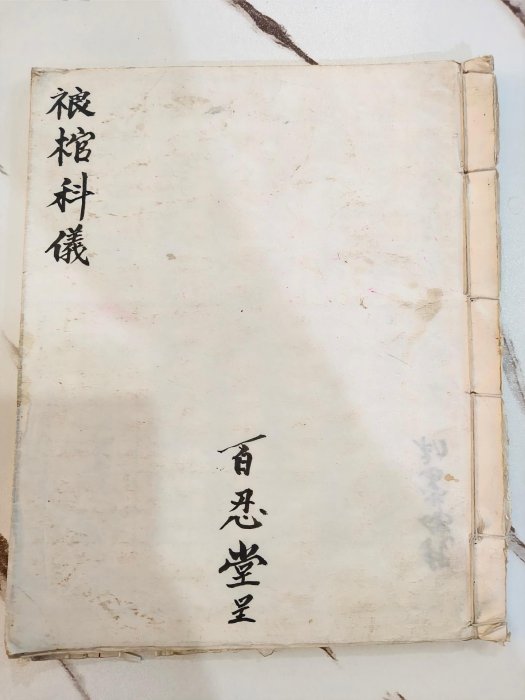 棺科儀
百忍堂呈